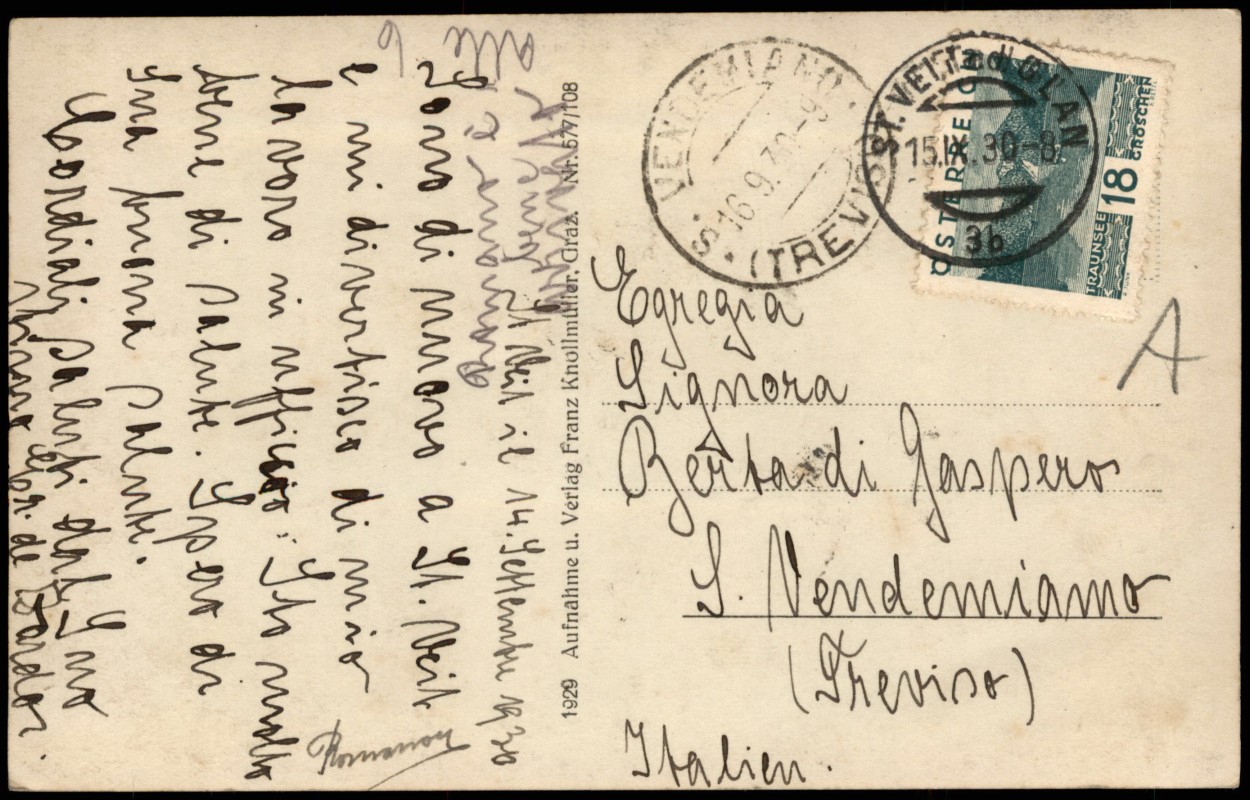 St. Veit il 14. Settembre 1930
Sono di nuovo a St. Veit
e mi divertisco di mio
lavoro in ufficio. Sto molto
bene di salute. Spero di
Sua buona salute.
Cordiali saluti dal Suo
de Bardor.
Romano
alle 6
Romano è
bene
1929 Aufnahme u. Verlag Franz Knollmüller, Graz. Nr. 577/108
S. VENDEMIANO
(TREVISO)
16.9.30-9
ST. VEIT a.d. GLAN
15.IX.30-8
3b
ÖSTERREICH
18
GROSCHEN
TRAUNSEE
A
Egregia
Signora
Berta di Gaspero
S. Vendemiamo
(Treviso)
Italien.